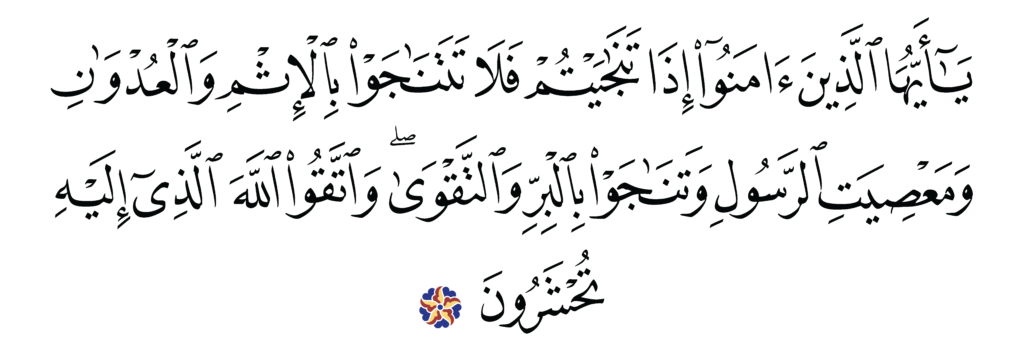 يَـٰٓأَيُّهَا ٱلَّذِينَ ءَامَنُوٓا۟ إِذَا تَنَـٰجَيْتُمْ فَلَا تَتَنَـٰجَوْا۟ بِٱلْإِثْمِ وَٱلْعُدْوَٰنِ
وَمَعْصِيَتِ ٱلرَّسُولِ وَتَنَـٰجَوْا۟ بِٱلْبِرِّ وَٱلتَّقْوَىٰ ۖ وَٱتَّقُوا۟ ٱللَّهَ ٱلَّذِىٓ إِلَيْهِ
تُحْشَرُونَ